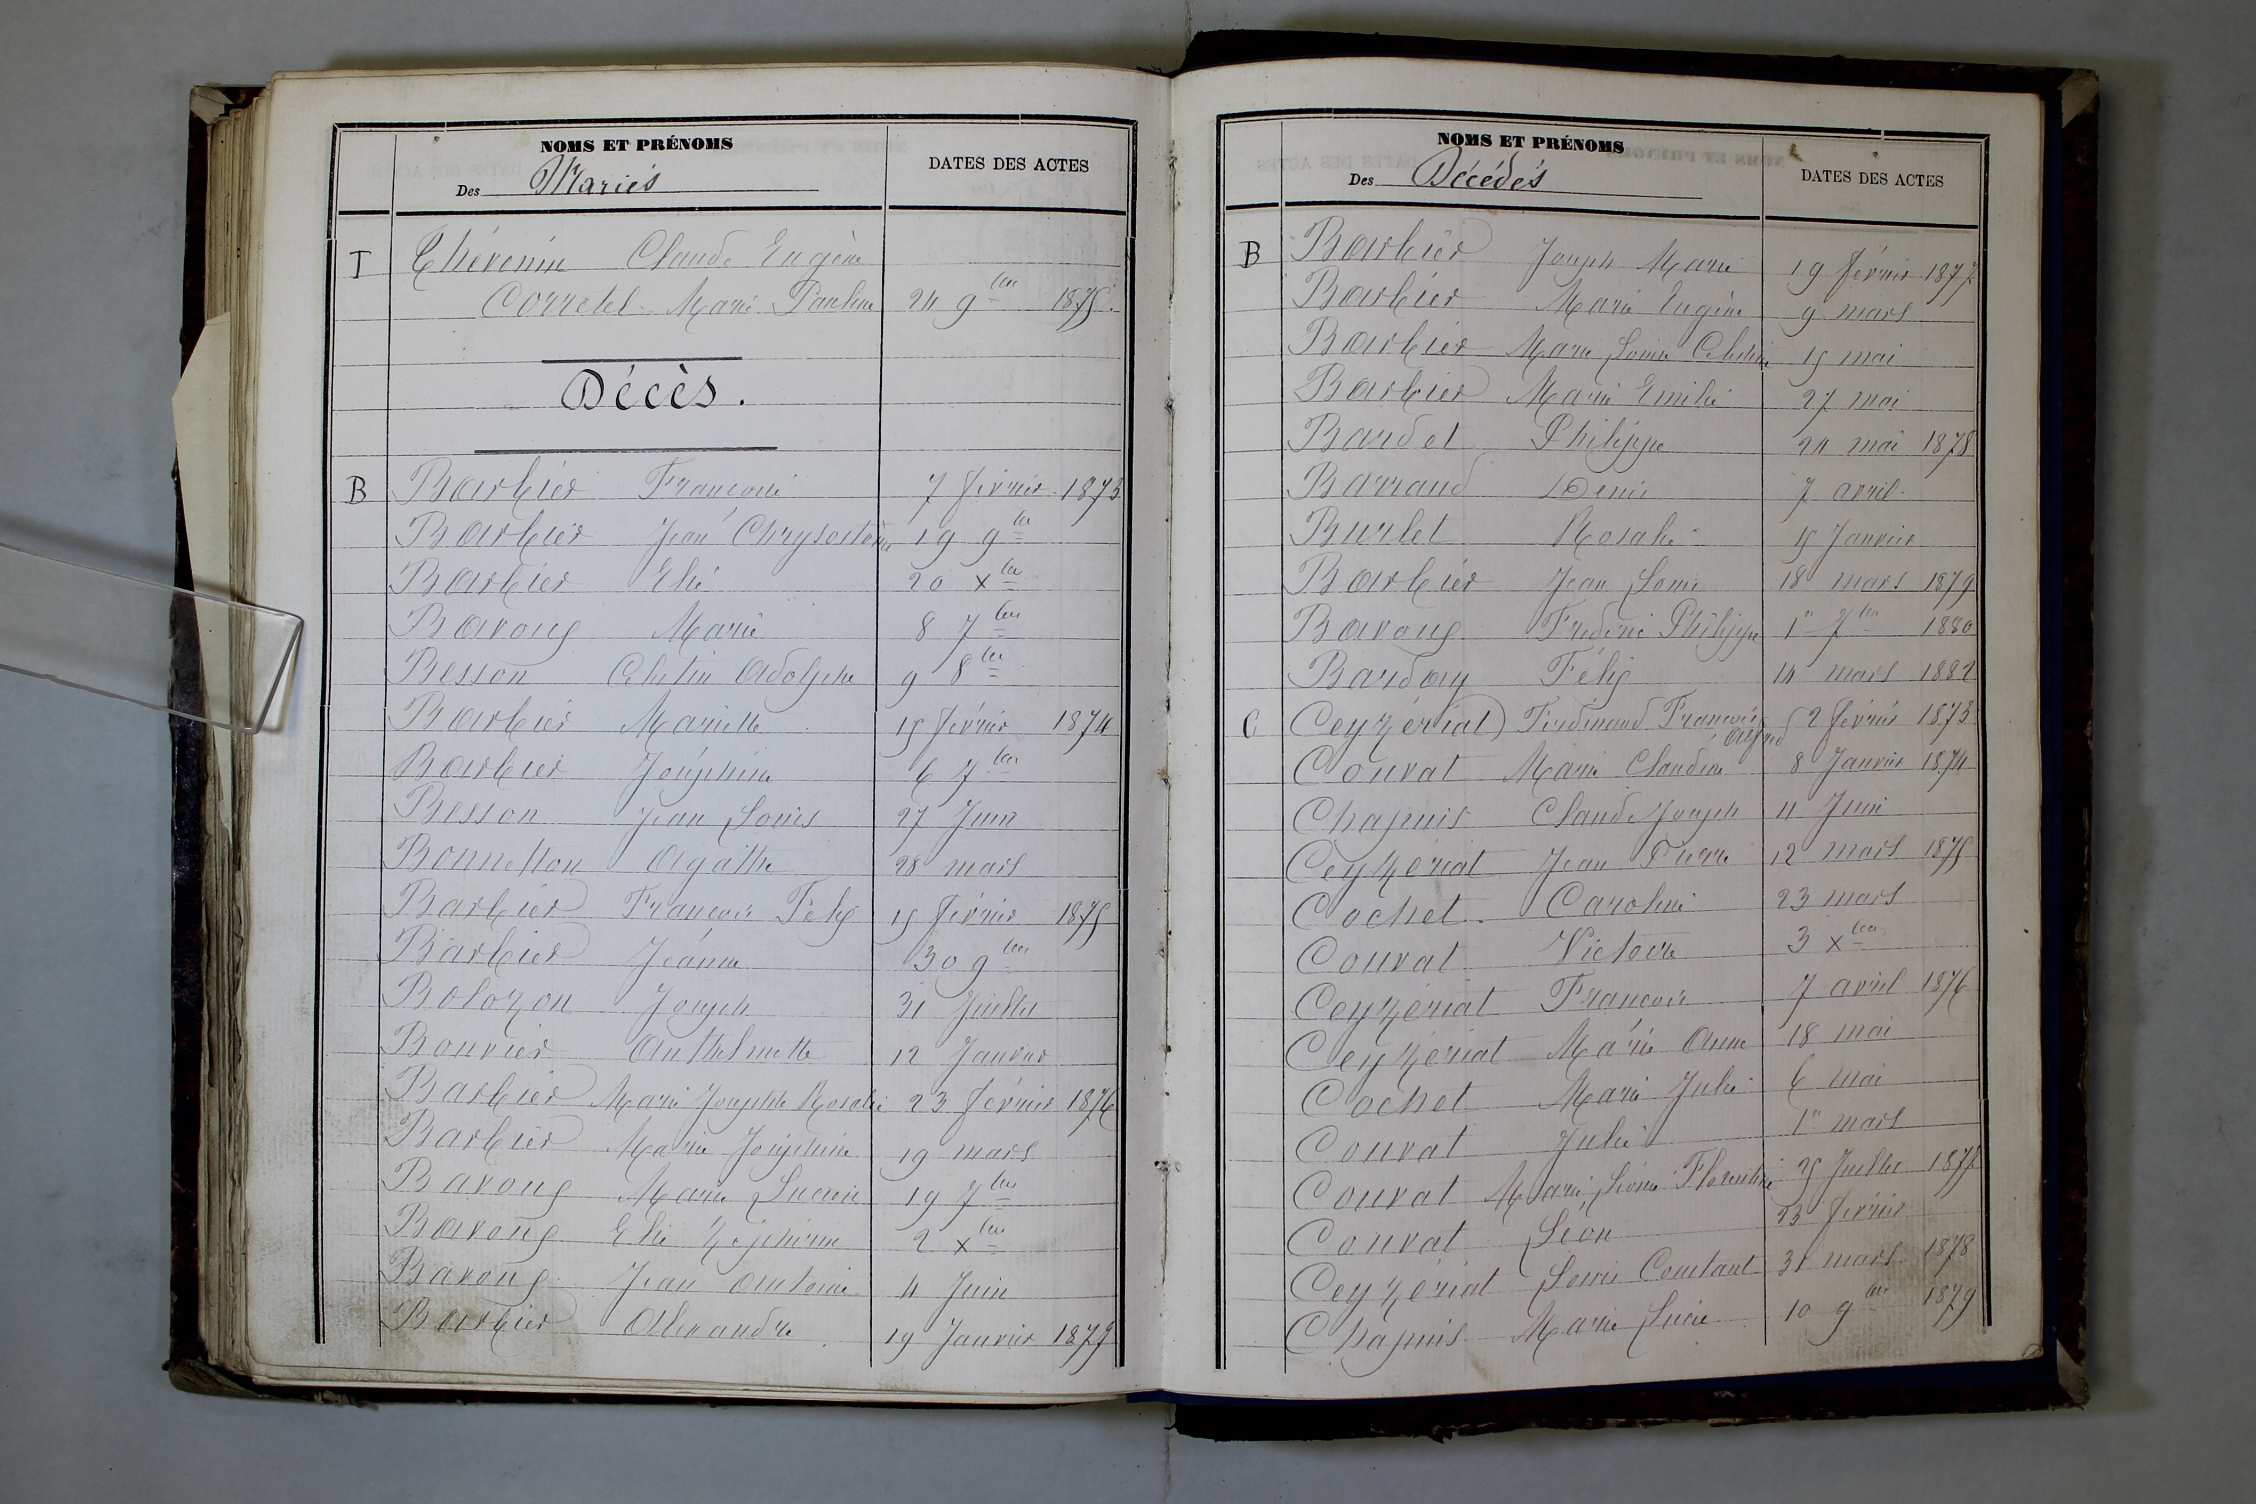 NOMS ET PRÉNOMS
Des Mariés
DATES DES ACTES
T Thévenin Claude Eugène
Corretel Marie Pauline 24 9bre 1875.
Décès.
B Barbier François 7 février 1873
Barbier Jean Chrysostôme 19 9bre
Barbier Elie 20 xbre
Baroug Marie 8 7bre
Besson Célestin Adolphe 9 8bre
Barbier Mariette 15 février 1874
Barbier Joséphine 6 7bre
Besson Jean Louis 27 Juin
Bonnetton Agathe 28 mars
Barbier François Félix 15 février 1875
Barbier Jeanne 30 9bre
Bolozon Joseph 31 Juillet
Bouvier Anthelmette 12 Janvier
Barbier Marie Josephte Rosalie 23 février 1876
Barbier Marie Joséphine 19 mars
Baroug Marie Lucien 19 7bre
Baroug Elie Zéphirin 2 xbre
Baroug Jean Antoine 4 Juin
Barbier Alexandre 19 Janvier
NOMS ET PRÉNOMS
Des Décédés
DATES DES ACTES
B Barbier Joseph Marie 19 février 1877
Barbier Marie Eugène 9 mars
Barbier Marie Louise Célestine 15 mai
Barbier Marie Emilie 27 mai
Bardet Philippe 24 mai 1878
Barraud Denis 7 avril
Burlet Rosalie 15 Janvier
Barbier Jean Louis 18 mars 1879
Baroug Frédéric Philippe 1er 7bre 1880
Bardoug Félix 14 mars 1882
C Ceyzériat Ferdinand François Alfred 2 février 1873
Couvat Marie Claudine 8 Janvier 1874
Chapuis Claude Joseph 11 Juin
Ceyzériat Jean Pierre 12 mars 1875
Cochet Caroline 23 mars
Couvat Victoire 3 xbre
Ceyzériat François 7 avril 1876
Ceyzériat Marie Anne 18 mai
Cochet Marie Julie 6 mai
Couvat Julie 1er mars
Couvat Marie Léonie Florentine 25 Juillet 1877
Couvat Léon 23 février
Ceyzériat Louis Constant 31 mars 1878
Chapuis Marie Lucie 10 9bre 1879